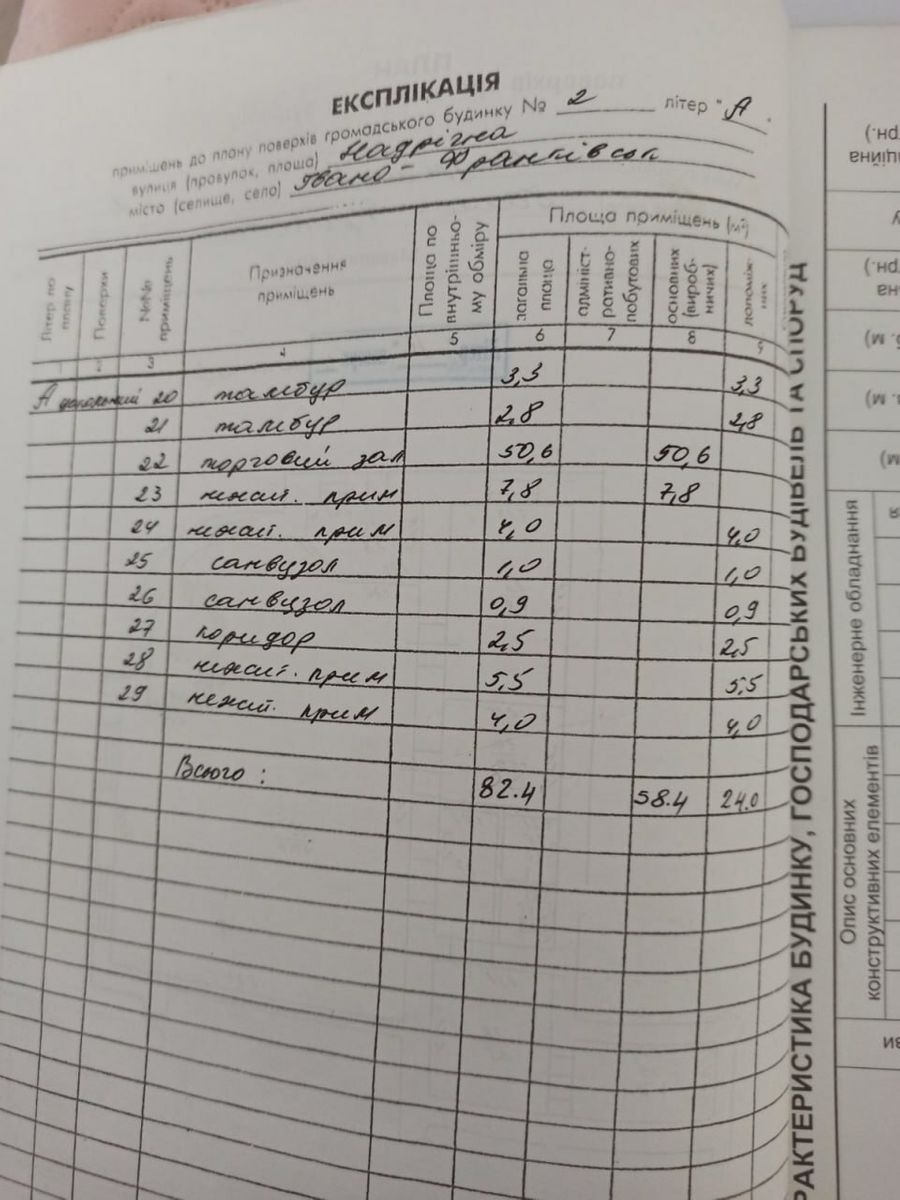 ЕКСПЛІКАЦІЯ
приміщень до плану поверхів громадського будинку № 2 літер " А
вулиця (провулок, площа) Надрічна
місто (селище, село) Івано-Франківськ
Літер по плану Поверхи №№ приміщень Призначення приміщень Площа по внутрішньому обміру Площа приміщень (м²)
загальна площа адміністративно-побутових основних (виробничих) допоміжних
1 2 3 4 5 6 7 8 9
А 20 тамбур 3,3 3,3
21 тамбур 2,8 2,8
22 торговий зал 50,6 50,6
23 нежит. прим 7,8 7,8
24 нежит. прим 4,0 4,0
25 санвузол 1,0 1,0
26 санвузол 0,9 0,9
27 коридор 2,5 2,5
28 нежит. прим 5,5 5,5
29 нежит. прим 4,0 4,0
Всього : 82.4 58.4 24.0
РАКТЕРИСТИКА БУДИНКУ, ГОСПОДАРСЬКИХ БУДІВЕЛЬ ТА СПОРУД
Інженерне обладнання
Опис основних
конструктивних елементів